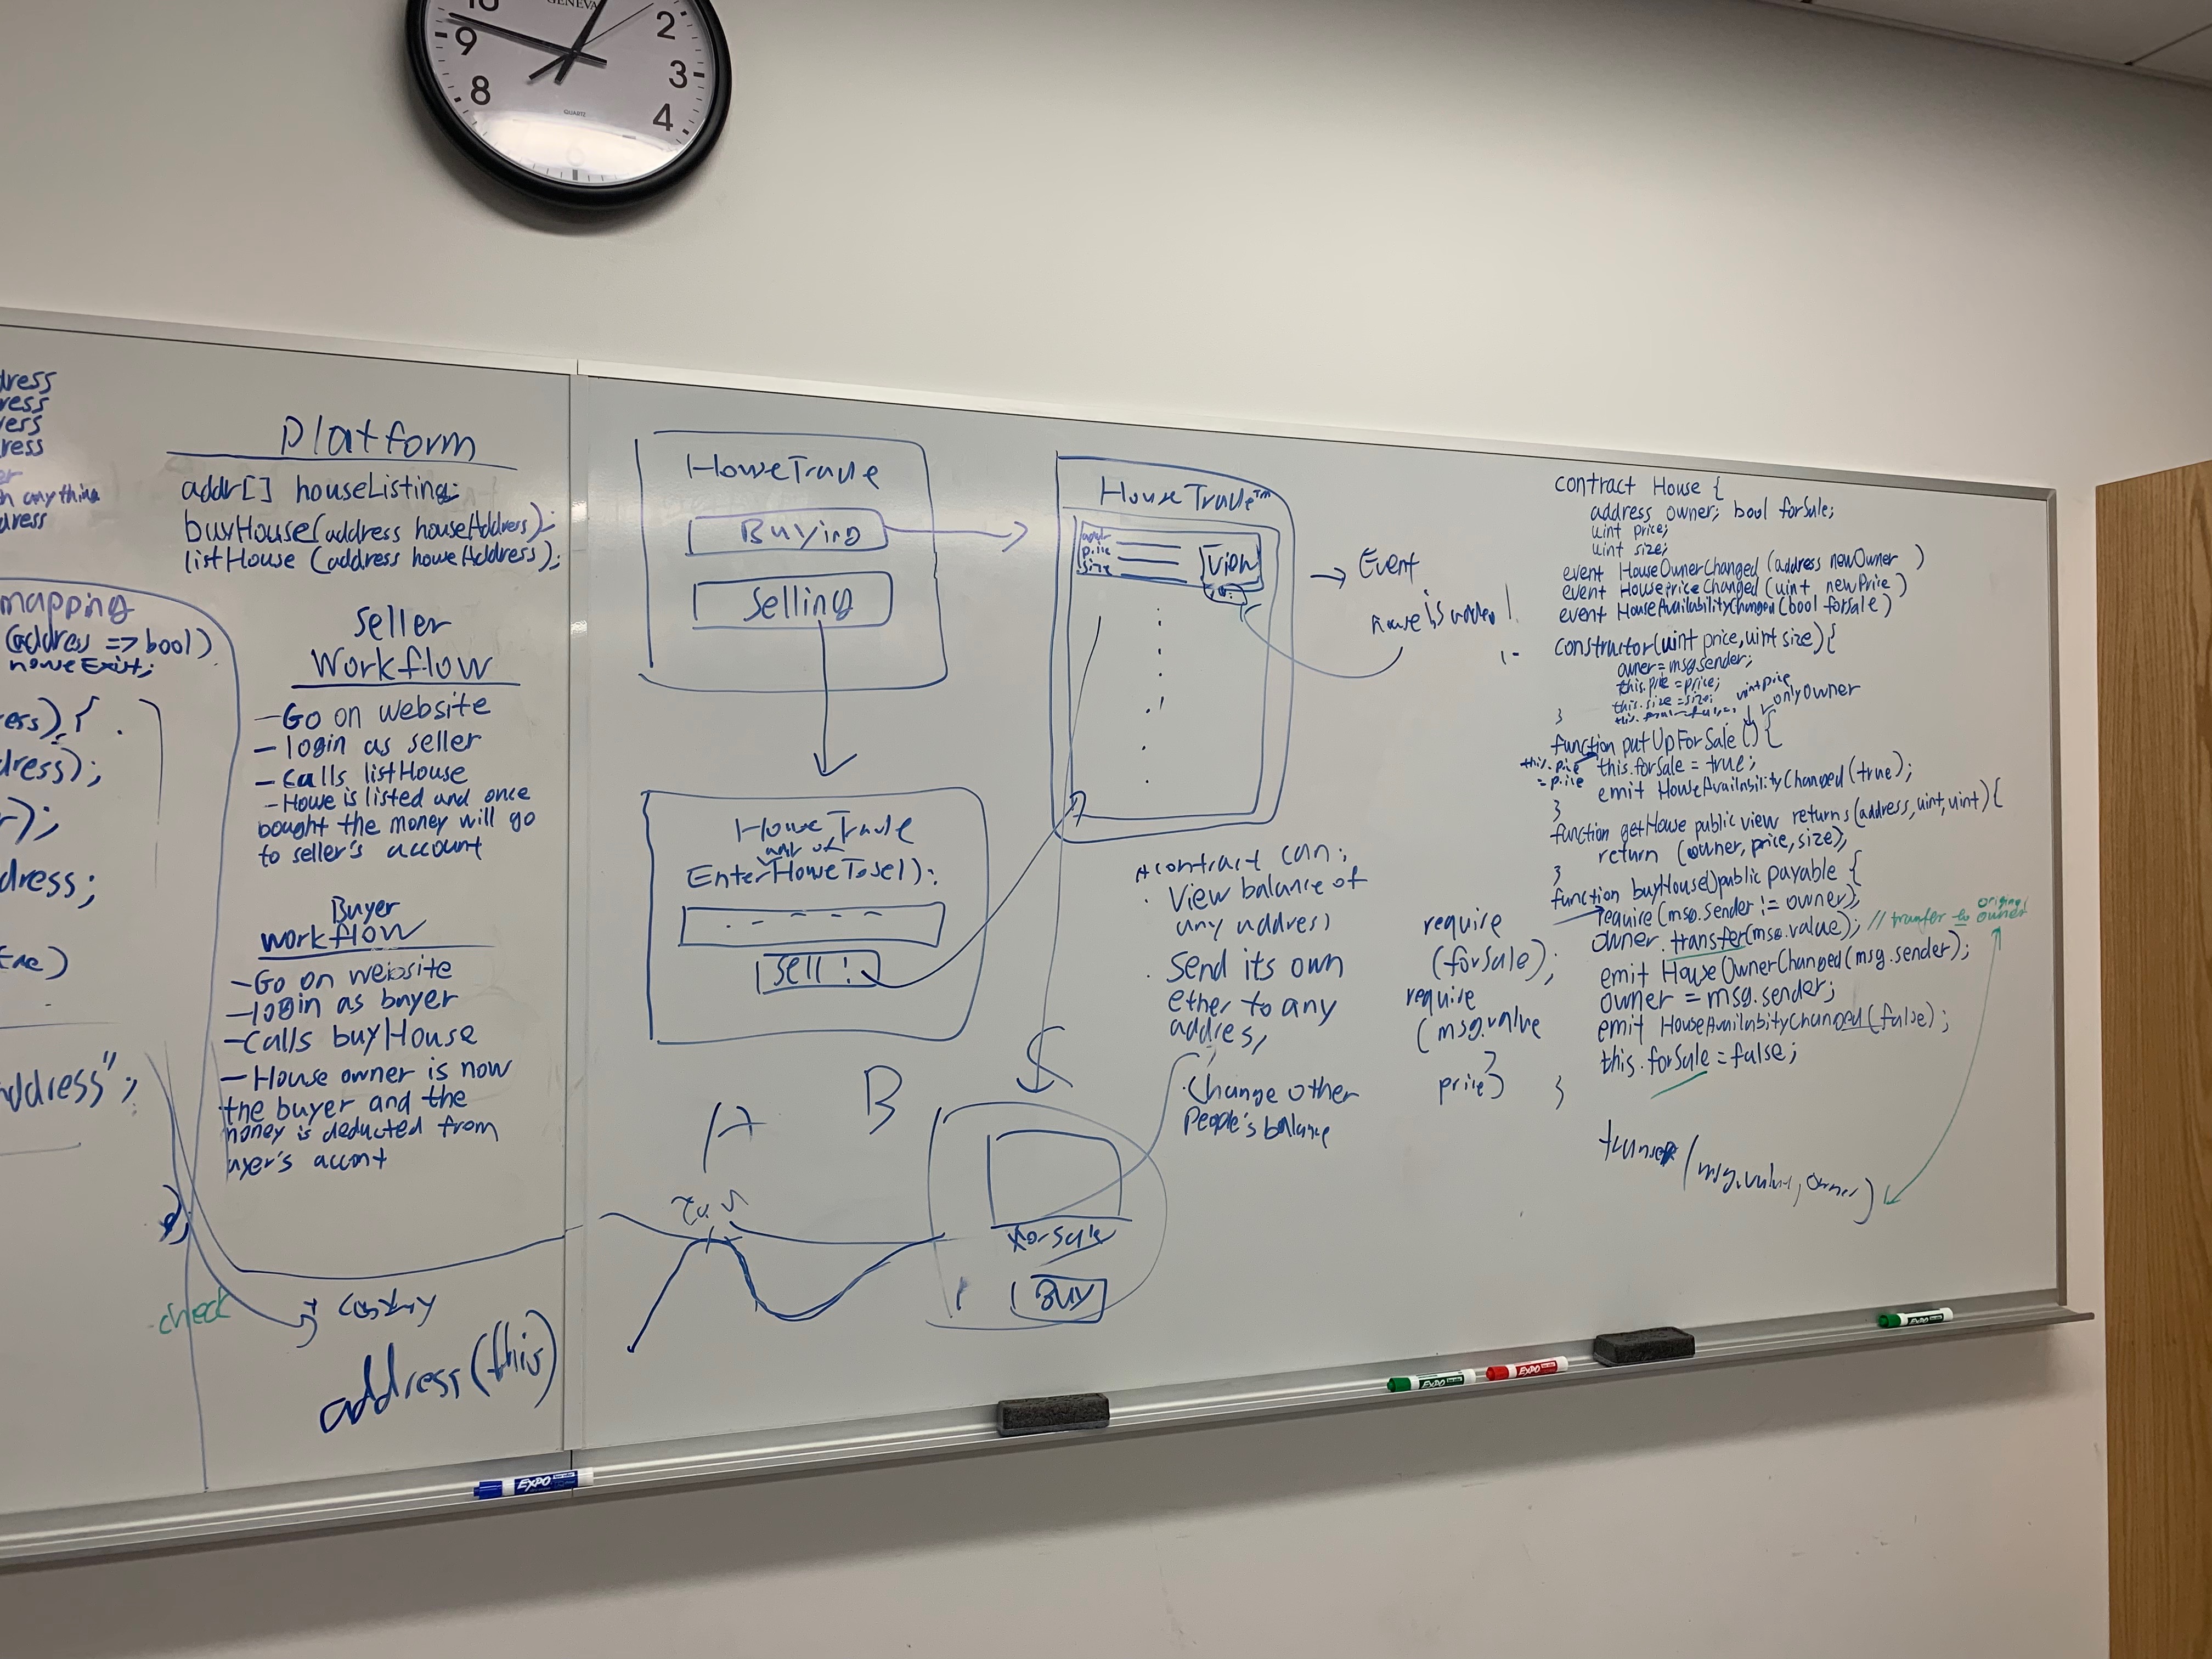 10
GENEVA
2
9
3
8
4
QUARTZ
6
dress
ress
ress
ress
er
h anything
dress
mapping
(address => bool)
houseExist;
ess) {
dress);
r);
dress;
ddress";
check
Platform
addr[] houseListing;
buyHouse(address houseAddress);
listHouse (address houseAddress);
Seller
Workflow
- Go on website
- login as seller
- calls listHouse
- House is listed and once
bought the money will go
to seller's account
Buyer
workflow
- Go on website
- login as buyer
- Calls buyHouse
- House owner is now
the buyer and the
money is deducted from
uyer's accont
address(this)
HouseTrade
Buying
Selling
HouseTrade
addr of
EnterHouseTosell:
Sell!
HouseTrade™
addr
price
size
View
→ Event
house is added!
A contract can:
· View balance of
any address
· Send its own
ether to any
address,
· Change other
People's balance
A
B
For sale
BUY
require
(forSale);
require
(msg.value
price)
contract House {
address owner; bool forSale;
uint price;
uint size;
event HouseOwnerChanged (address newOwner )
event HousepriceChanged (uint newPrice)
event HouseAvailabilityChanged(bool forSale)
constructor(uint price, uint size){
owner=msg.sender;
this.price=price;
this.size=size;
}
uint price
onlyOwner
function putUpForSale () {
this.price
= price
this.forSale = true;
emit HouseAvailabilityChanged(true);
}
function getHouse public view returns (address, uint, uint) {
return (owner, price, size);
}
function buyHouse() public payable {
require (msg.sender != owner);
owner.transfer(msg.value); // transfer to original owner
emit HouseOwnerChanged(msg.sender);
owner = msg.sender;
emit HouseAvailabityChanged(false);
this.forSale = false;
}
(msg.value, owner)
EXPO
EXPO
EXPO
EXPO